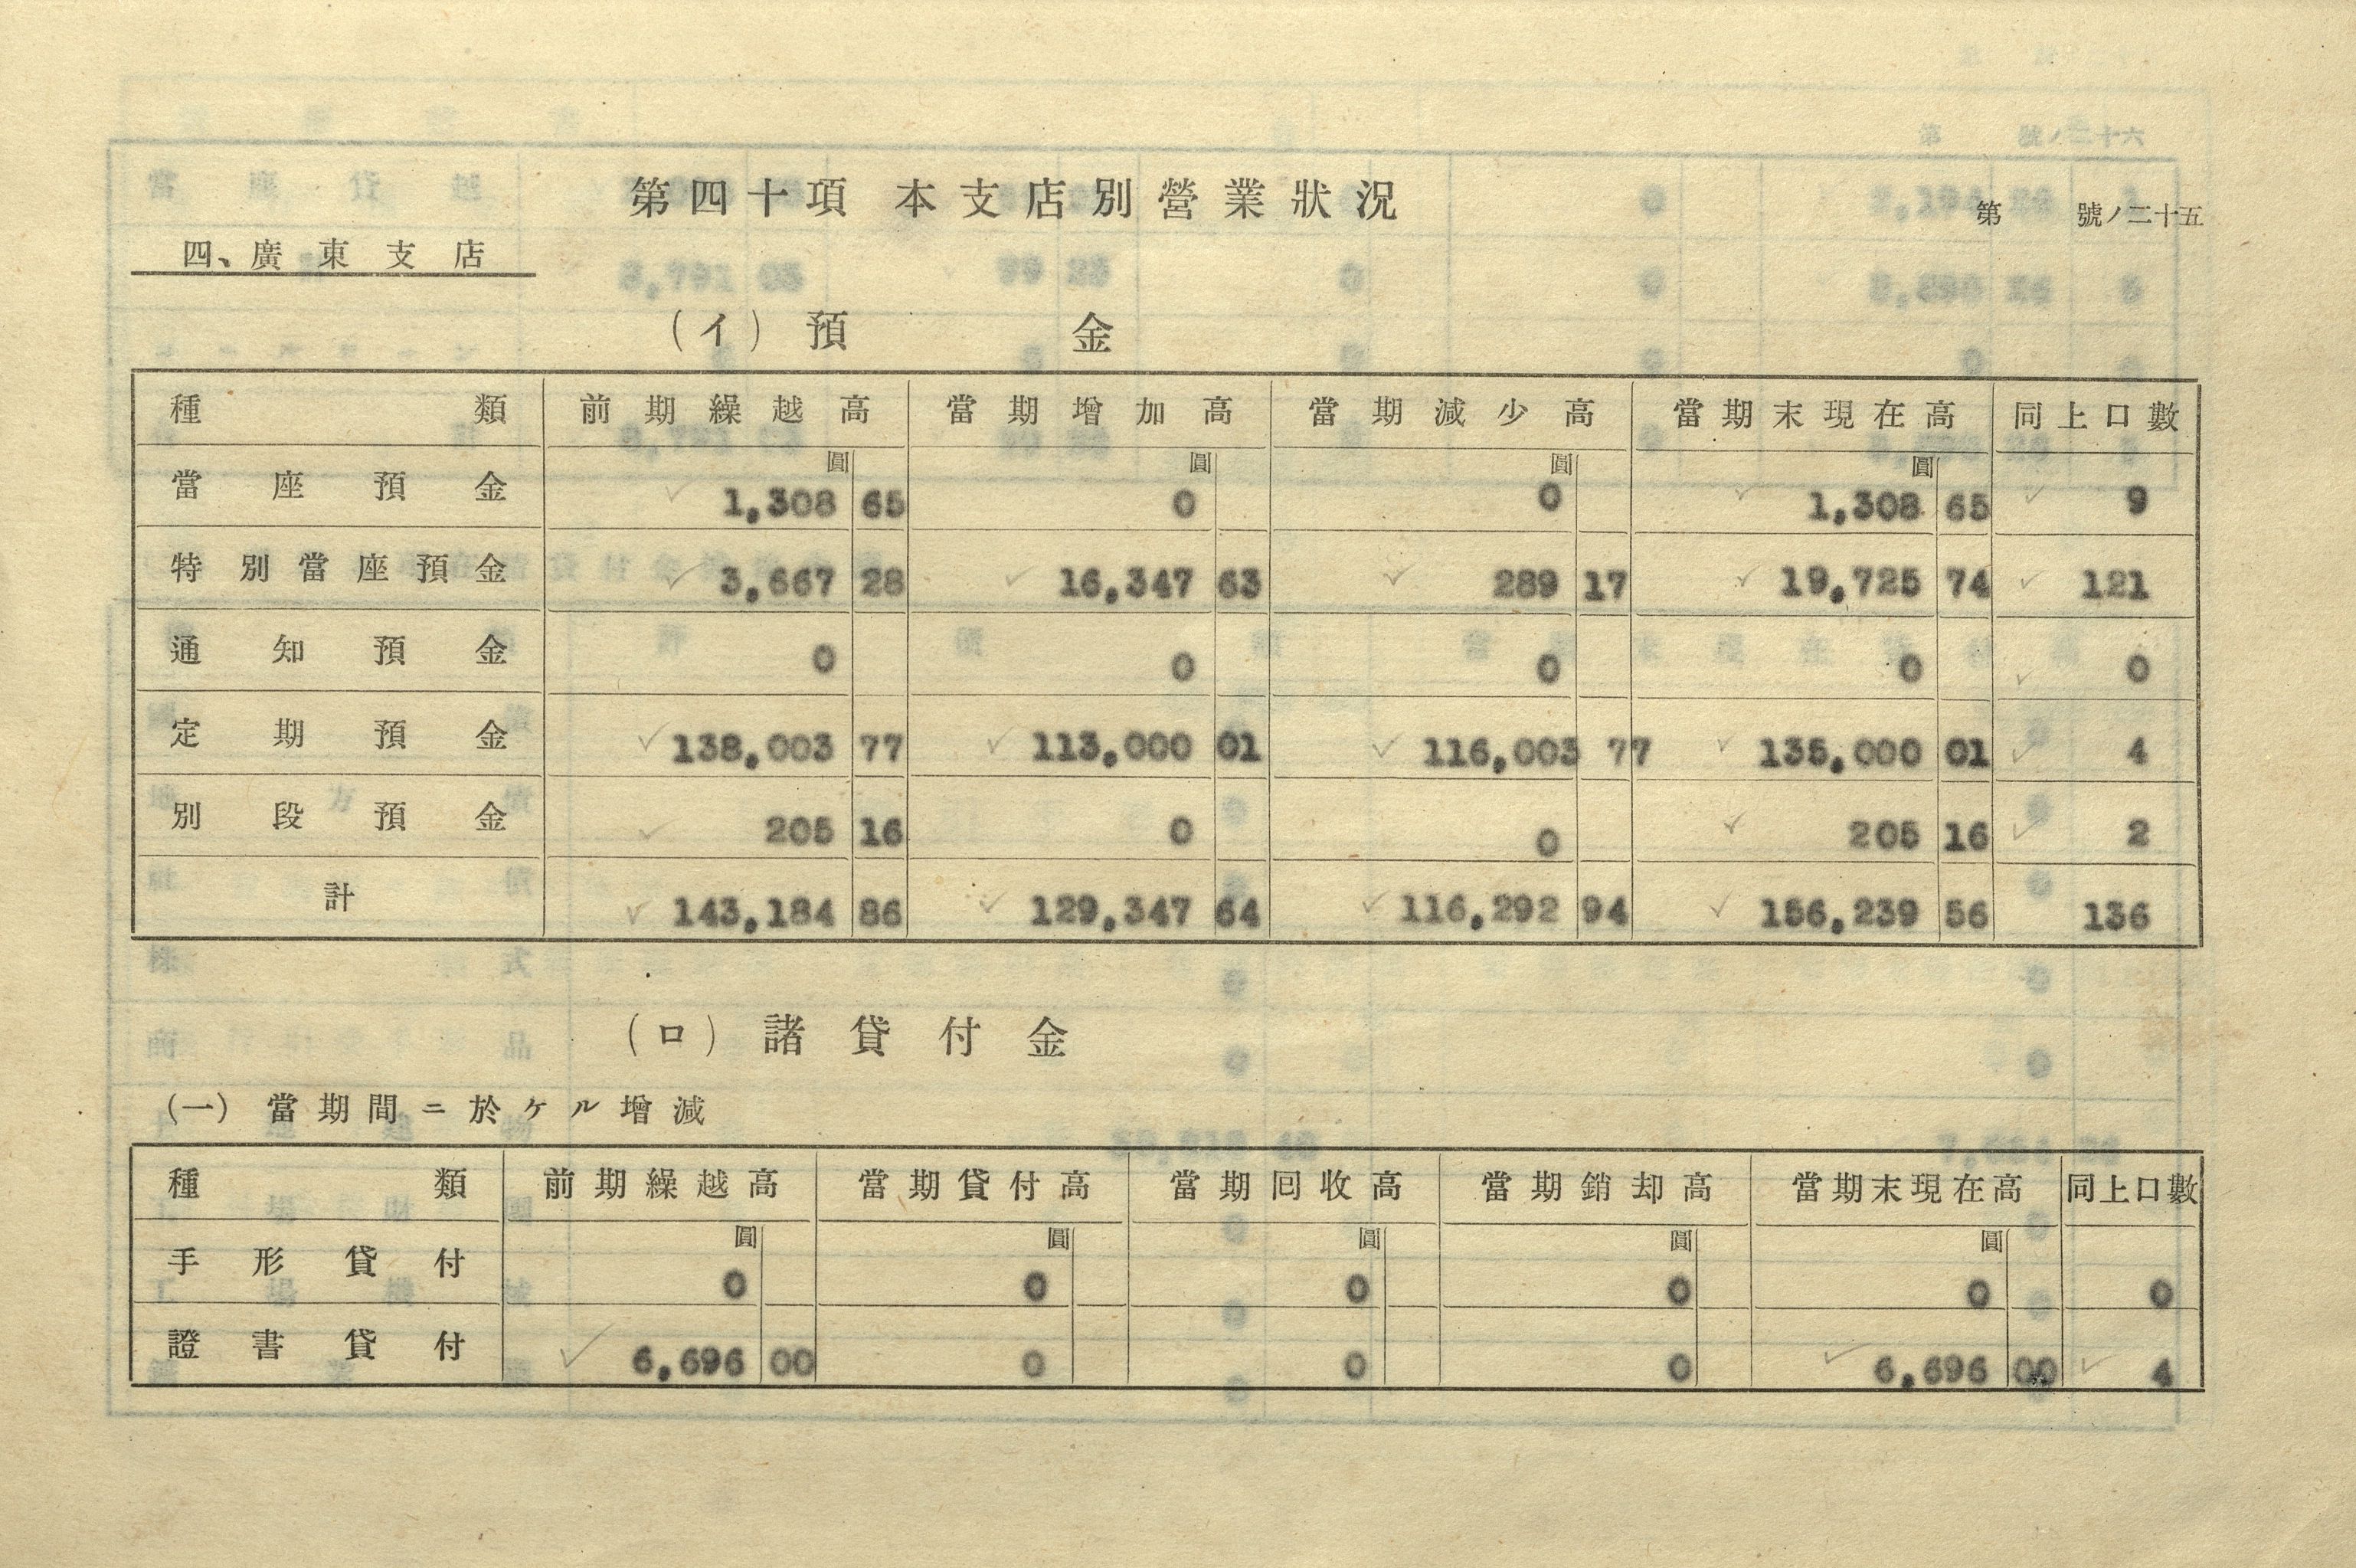 第四十項 本支店別營業狀況
第 號ノ二十五
四、廣東支店
(イ) 預金
種類 前期繰越高 當期增加高 當期減少高 當期末現在高 同上口數
圓 圓 圓 圓
當座預金 1,308 65 0 0 1,308 65 9
特別當座預金 3,667 28 16,347 63 289 17 19,725 74 121
通知預金 0 0 0 0 0
定期預金 138,003 77 113,000 01 116,003 77 135,000 01 4
別段預金 205 16 0 0 205 16 2
計 143,184 86 129,347 64 116,292 94 156,239 56 136
(ロ) 諸貸付金
(一) 當期間ニ於ケル增減
種類 前期繰越高 當期貸付高 當期回收高 當期銷却高 當期末現在高 同上口數
圓 圓 圓 圓 圓
手形貸付 0 0 0 0 0 0
證書貸付 6,696 00 0 0 0 6,696 00 4